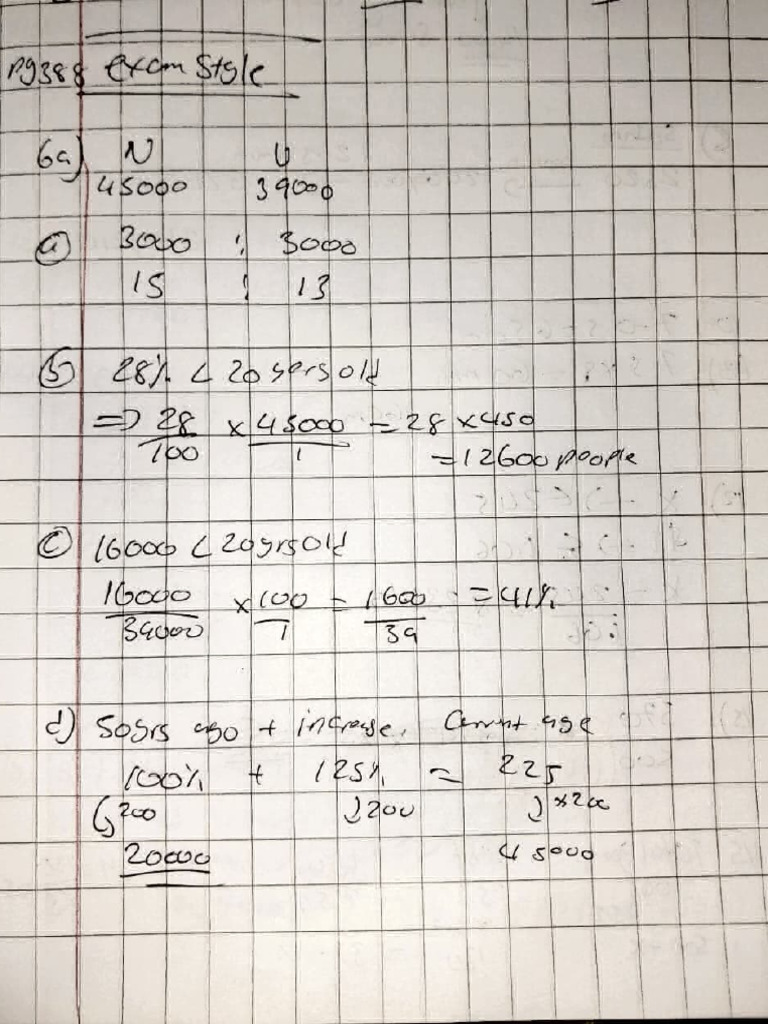 Pg388 Exam Style
6a) N U
45000 39000
(a) 3000 : 3000
15 : 13
(b) 28% < 20 yers old
=> 28/100 × 45000/1 = 28 × 450
= 12600 people
(c) 16000 < 20yrs old
16000/39000 × 100/1 = 1600/39 = 41%
d) 50yrs ago + increase. Current age
100% + 125% = 225
200 200 ×200
20000 45000